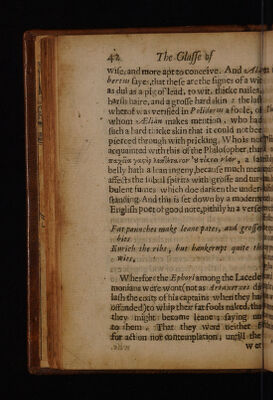 42 The Glasse of
wise, and more apt to conceive. And
bertus sayes, that these are the signes of a wit
as dul as a pig of lead, to wit, thicke nailes,
harsh haire, and a grosse hard skin: the last
whereof was verified in Polidorus a foole, of
whom Ælian makes mention, who had
such a hard thicke skin that it could not bee
pierced through with pricking. Who is not
acquainted with this of the Philosopher, that
παχεῖα γαστὴρ λεπτὸν οὐ τίκτει νόον, a
belly hath a lean ingeny, because much meat
affects the subtil spirits with grosse and tur-
bulent fumes which doe darken the under-
standing. And this is set down by a modern
English poet of good note, pithily in a verse
Fat paunches make leane pates, and grosser
bits
Enrich the ribs, but bankerupt quite the
wits,
Wherfore the Ephori among the Lacede-
monians were wont (not as Artaxerxes did
lash the coats of his captains when they had
offended) to whip their fat fools naked, that
they might become leane; saying
to them, That they were neither fit
for action nor contemplation, untill they
wer